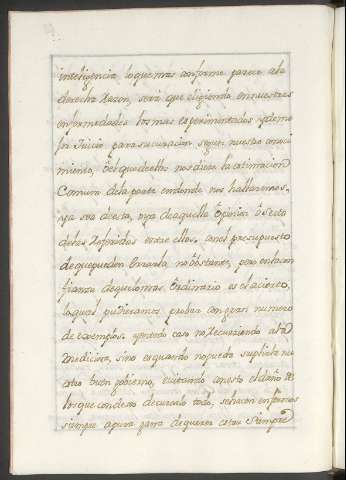 inteligencia, loque mas conforme parece ala
derecha Razon, será que eligiendo en nuestras
enfermedades los mas esperimentados, y de me
jor Juicio para su curacion segun nuestro conoci
miento, ó el que de ellos nos diere la estimacion
Comun de la parte en donde nos hallaremos,
ya sea de esta, o ya de aquella Opinion, ó Secta
de las Referidas entre ellos, con el presupuesto
de que pueden errarla, no obstante, pero en la con
fianza de que lo mas Ordinario es el acierto,
lo qual pudieramos probar con gran numero
de exemplos, y en todo caso no Recurriendo a la
Medicina, sino es quando no pueda suplirla
otro buen gobierno, evitando con esto el daño de
los que con deseo de curarlo todo, se hacen enfermos
siempre a pura gana de querer estar siempre